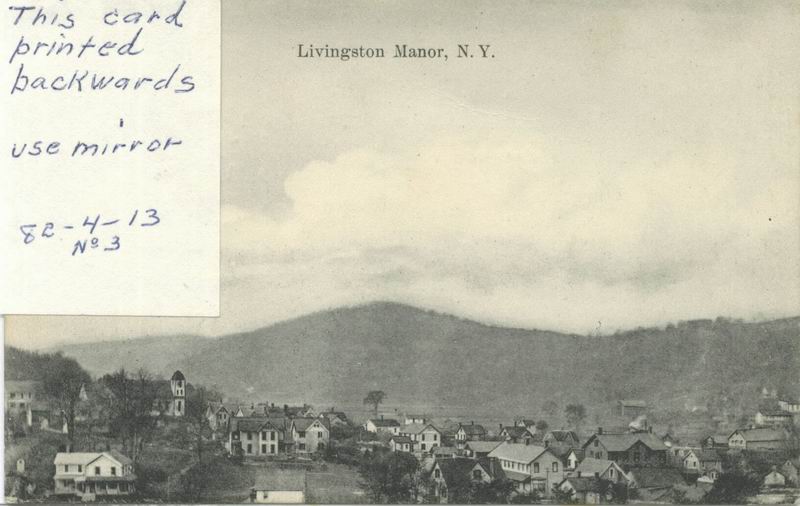 This card
printed
backwards
use mirror
82-4-13
No 3
Livingston Manor, N. Y.